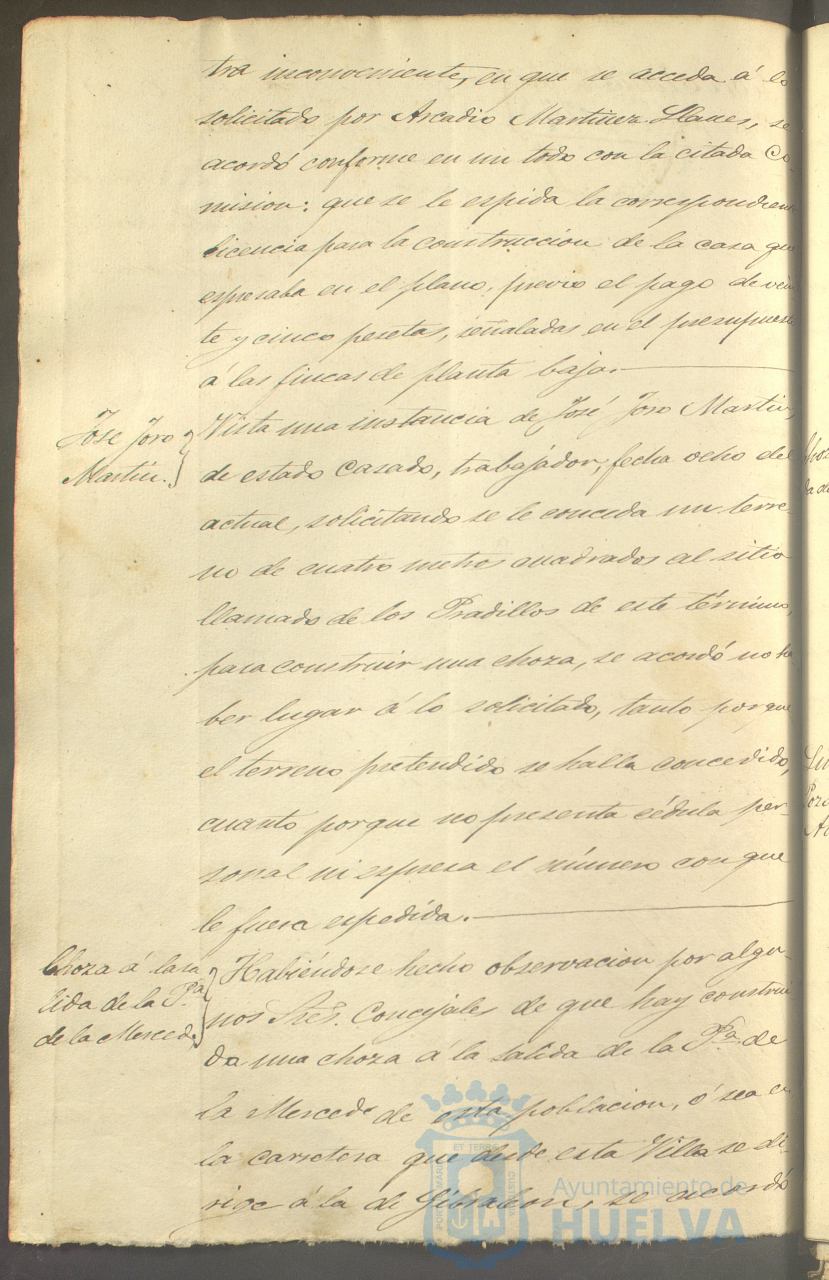 tra inconveniente, en que se acceda á lo
solicitado por Arcadio Martinez Llanes, se
acordó conforme en un todo con la citada Co-
mision: que se le espida la correspondiente
licencia para la construccion de la casa que
espresaba en el plano, previo el pago de vein
te y cinco pesetas, señaladas en el presupuesto
á las fincas de planta baja.
José Toro
Martin.
Vista una instancia de José Toro Martin,
de estado casado, trabajador, fecha ocho del
actual, solicitando se le conceda un terre-
no de cuatro metros cuadrados al sitio
llamado de los Pradillos de este término,
para construir una choza, se acordó no ha
ber lugar á lo solicitado, tanto porque
el terreno pretendido se halla concedido,
cuanto porque no presenta cédula per-
sonal ni espresa el número con que
le fuera espedida.
Choza á la sa
lida de la Pª
de la Merced.
Habiéndose hecho observacion por algu-
nos Sres. Concejales de que hay construi
da una choza á la salida de la Pª de
la Merced de esta poblacion, ó sea en
la carretera que desde esta Villa se di-
rige á la de Gibraleon, se acordó
Ayuntamiento de
HUELVA